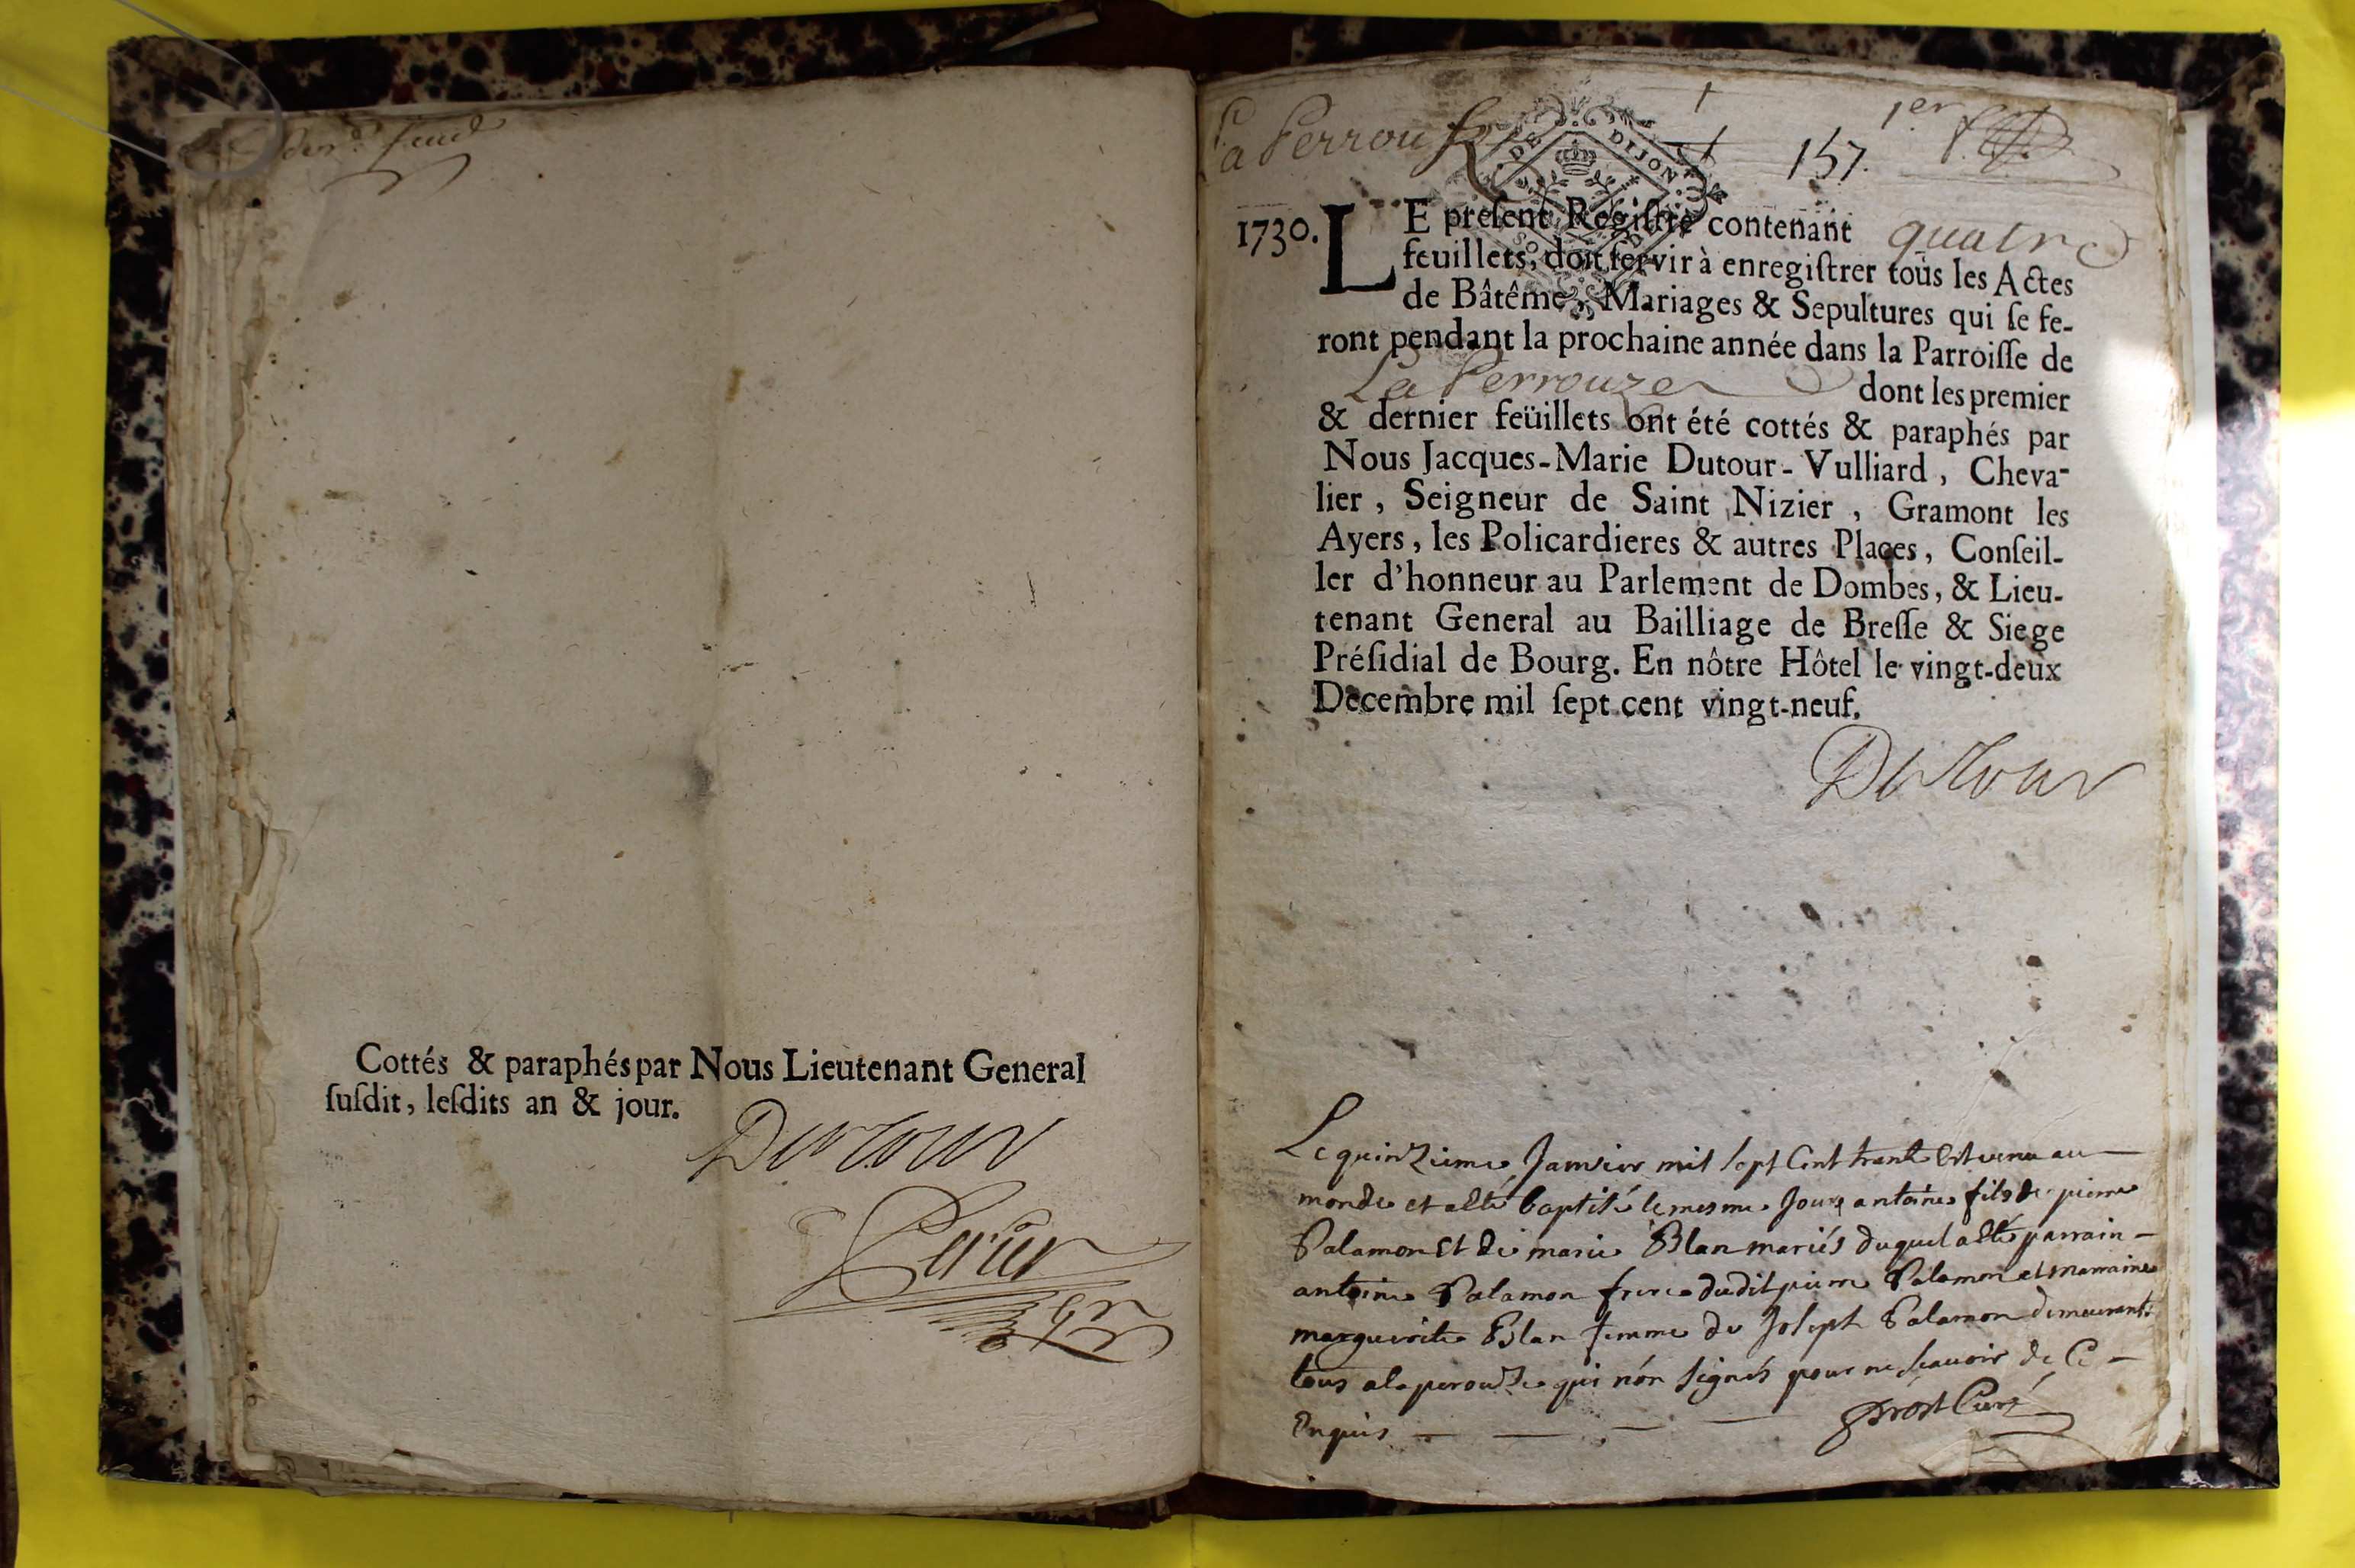 Cottés & paraphés par Nous Lieutenant General
ſuſdit, leſdits an & jour.
Dutour
Perier
La Perrouse
1er
157.
DE DIJON
1730. LE preſent Regiſtre contenant quatre
feuillets, doit ſervir à enregiſtrer tous les Actes
de Bâtême, Mariages & Sepultures qui ſe fe-
ront pendant la prochaine année dans la Parroiſſe de
La Perrouze dont les premier
& dernier feüillets ont été cottés & paraphés par
Nous Jacques-Marie Dutour-Vulliard, Cheva-
lier, Seigneur de Saint Nizier, Gramont les
Ayers, les Policardieres & autres Places, Conſeil-
ler d'honneur au Parlement de Dombes, & Lieu-
tenant General au Bailliage de Breſſe & Siege
Préſidial de Bourg. En nôtre Hôtel le vingt-deux
Decembre mil ſept cent vingt-neuf.
Dutour
Le quinzieme Janvier mil sept Cent trante Est venu au
monde et a Eté baptisé le mesme Jour antoine fils de pierre
Palamon Et de marie Blan mariés duquel a Eté parrain
antoine Palamon frere dudit pierre Palamon et marraine
marguerite Blan femme de Joseph Palamon demeurants
tous a la perouze qui nón signés pour ne scauoir de Ce
Enquis
Prost Curé